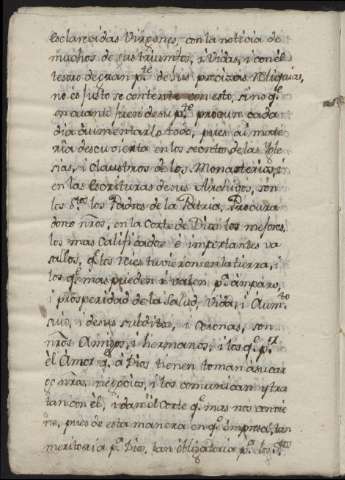 Esclarecidas Virgenes, con la noticia de
muchos de sus triumfos, i Vidas, i con el
tesoro de gran p.te de sus preciosas Reliquias,
no es justo se contente con esto, sino q.e
en quanto fuere de su p.te procure cada
dia aumentarlo todo, pues ai mate
ria descubierta en los secretos de las Igle
sias, i Claustros de los Monasterios, i
en las Escrituras de sus Archivos, son
los S.tos los Padres de la Patria,
nros, en la Corte de Dios los mejores,
los mas Calificados e importantes va
sallos, q.e los Reies tuvieron en la tierra, i
los q.e mas pueden i valen p.a amparo,
i prosperidad de la Salud, Vida, i Aum.to
suio, i de sus subditos, i Coronas, son
nros Amigos, i hermanos, i los q.e p.r
el Amor q.e a Dios tienen toman a su car
go nros negocios, i los comunican i tra
tan con el, i dan el Corte q.e mas nos convie
ne, pues de esta manera en q.e Impresa, tan
meritoria p.a Dios, tan obligatoria p.a los S.tos